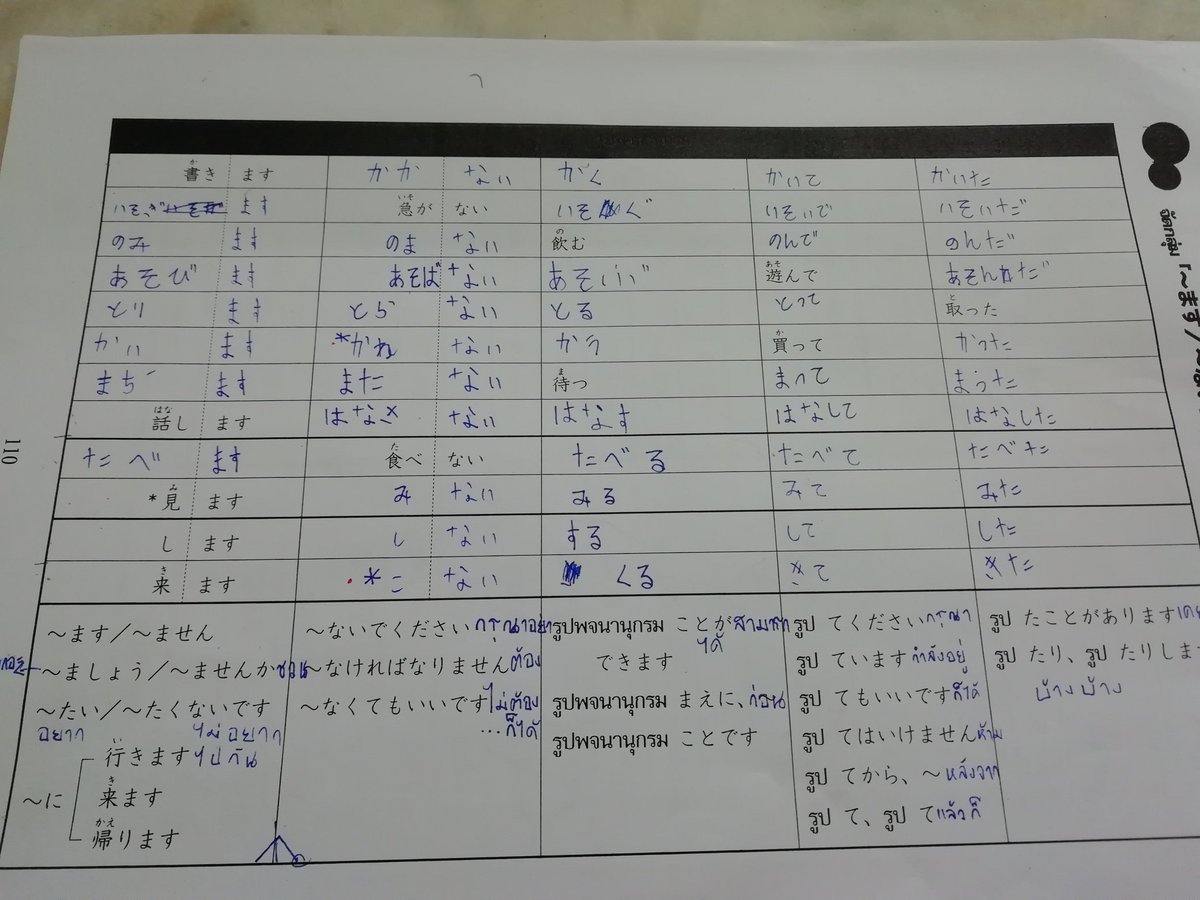 書き ます かか ない かく かいて かいた
いそぎ ます 急が ない いそぐ いそいで いそいだ
のみ ます のま ない 飲む のんで のんだ
あそび ます あそば ない あそぶ 遊んで あそんだ
とり ます とら ない とる とって 取った
かい ます *かわ ない かう 買って かった
まち ます また ない 待つ まって まった
話し ます はなさ ない はなす はなして はなした
たべ ます 食べ ない たべる たべて たべた
*見 ます み ない みる みて みた
し ます し ない する して した
来 ます *こ ない くる きて きた
～ます／～ません
～ましょう／～ませんか ชวน
～たい／～たくないです
อยาก ไม่อยาก
～に
行きます ไปกัน
来ます
帰ります
～ないでください กรุณาอย่า
～なければなりません ต้อง
～なくてもいいです ไม่ต้อง
...ก็ได้
รูปพจนานุกรม ことが สามารถ
できます ได้
รูปพจนานุกรม まえに、 ก่อน
รูปพจนานุกรม ことです
รูป てください กรุณา
รูป ています กำลังอยู่
รูป てもいいです ก็ได้
รูป てはいけません ห้าม
รูป てから、～ หลังจาก
รูป て、รูป て แล้วก็
รูป たことがあります เคย
รูป たり、รูป たりします
บ้าง บ้าง
110